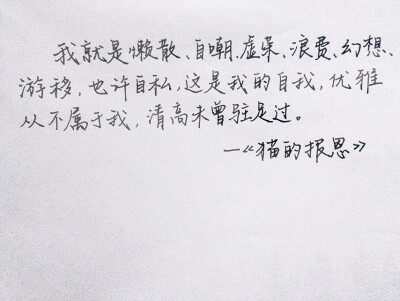 我就是懒散、自嘲、虚荣、浪费、幻想、
游移,也许自私,这是我的自我,优雅
从不属于我,清高未曾驻足过。
—《猫的报恩》